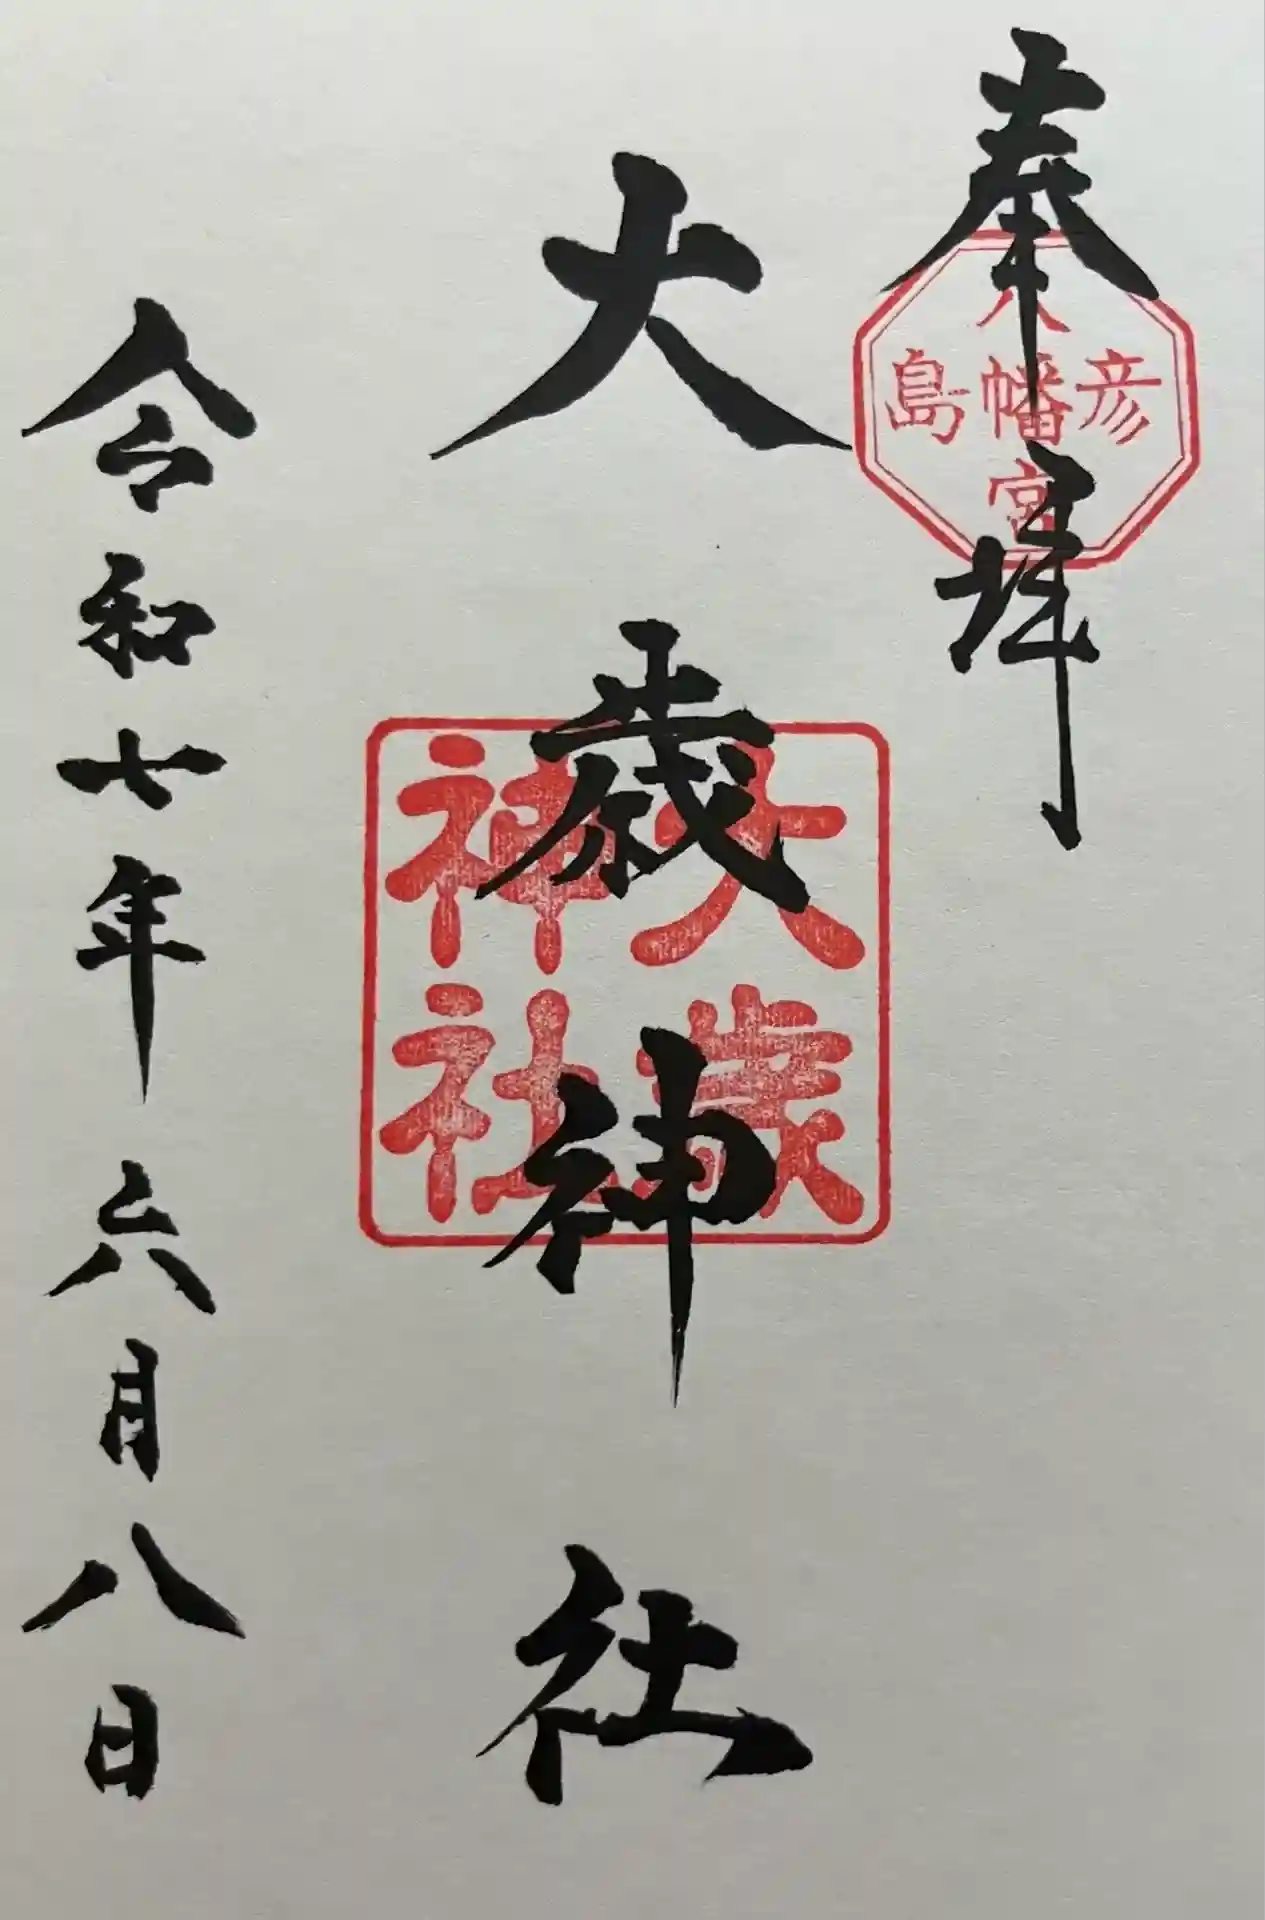 奉拝
彦島
八幡宮
大歳神社
大歳
神社
令和七年六月八日